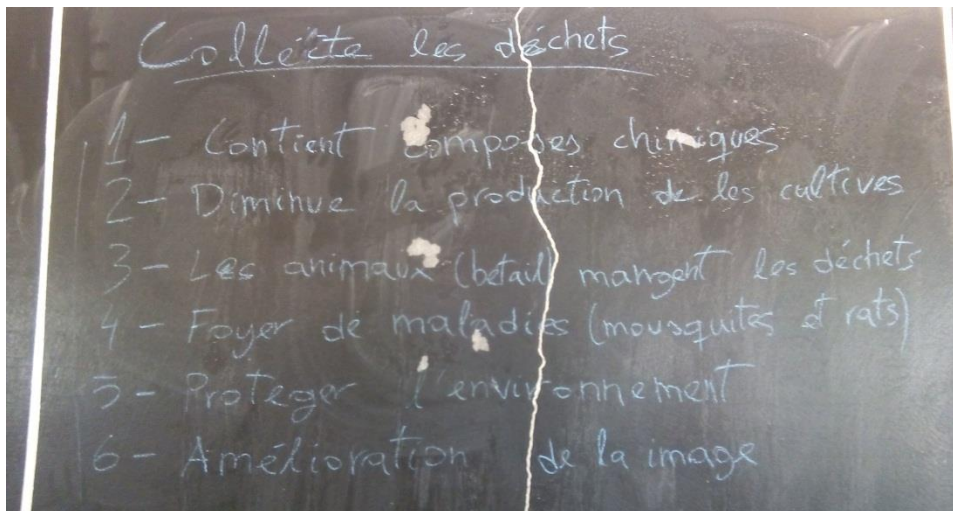 Collecte les déchets
1- Contient composes chimiques
2- Diminue la production de les cultives
3- Les animaux (betail) mangent les déchets
4- Foyer de maladies (mousquites et rats)
5- Proteger l'environnement
6- Amélioration de la image